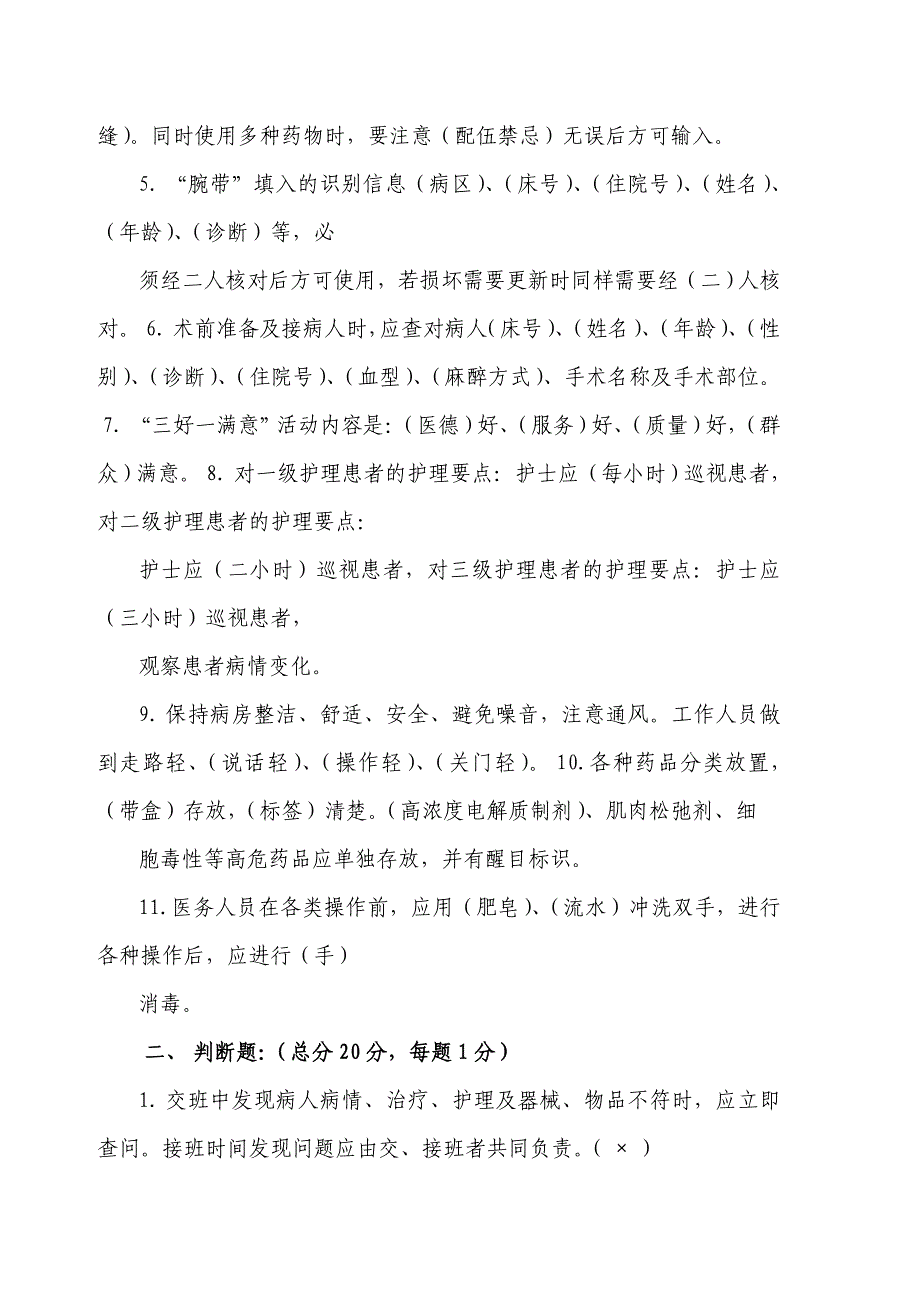 缝)。同时使用多种药物时，要注意(配伍禁忌)无误后方可输入。
5. “腕带”填入的识别信息(病区)、(床号)、(住院号)、(姓名)、
(年龄)、(诊断)等，必
须经二人核对后方可使用，若损坏需要更新时同样需要经(二)人核
对。 6. 术前准备及接病人时，应查对病人(床号)、(姓名)、(年龄)、(性
别)、(诊断)、(住院号)、(血型)、(麻醉方式)、手术名称及手术部位。
7. “三好一满意”活动内容是：(医德)好、(服务)好、(质量)好，(群
众)满意。 8. 对一级护理患者的护理要点：护士应(每小时)巡视患者，
对二级护理患者的护理要点：
护士应(二小时)巡视患者，对三级护理患者的护理要点：护士应
(三小时)巡视患者，
观察患者病情变化。
9. 保持病房整洁、舒适、安全、避免噪音，注意通风。工作人员做
到走路轻、(说话轻)、(操作轻)、(关门轻)。 10.各种药品分类放置，
(带盒)存放，(标签)清楚。(高浓度电解质制剂)、肌肉松弛剂、细
胞毒性等高危药品应单独存放，并有醒目标识。
11.医务人员在各类操作前，应用(肥皂)、(流水)冲洗双手，进行
各种操作后，应进行(手)
消毒。
二、 判断题：(总分20分，每题1分)
1. 交班中发现病人病情、治疗、护理及器械、物品不符时，应立即
查问。接班时间发现问题应由交、接班者共同负责。( × )